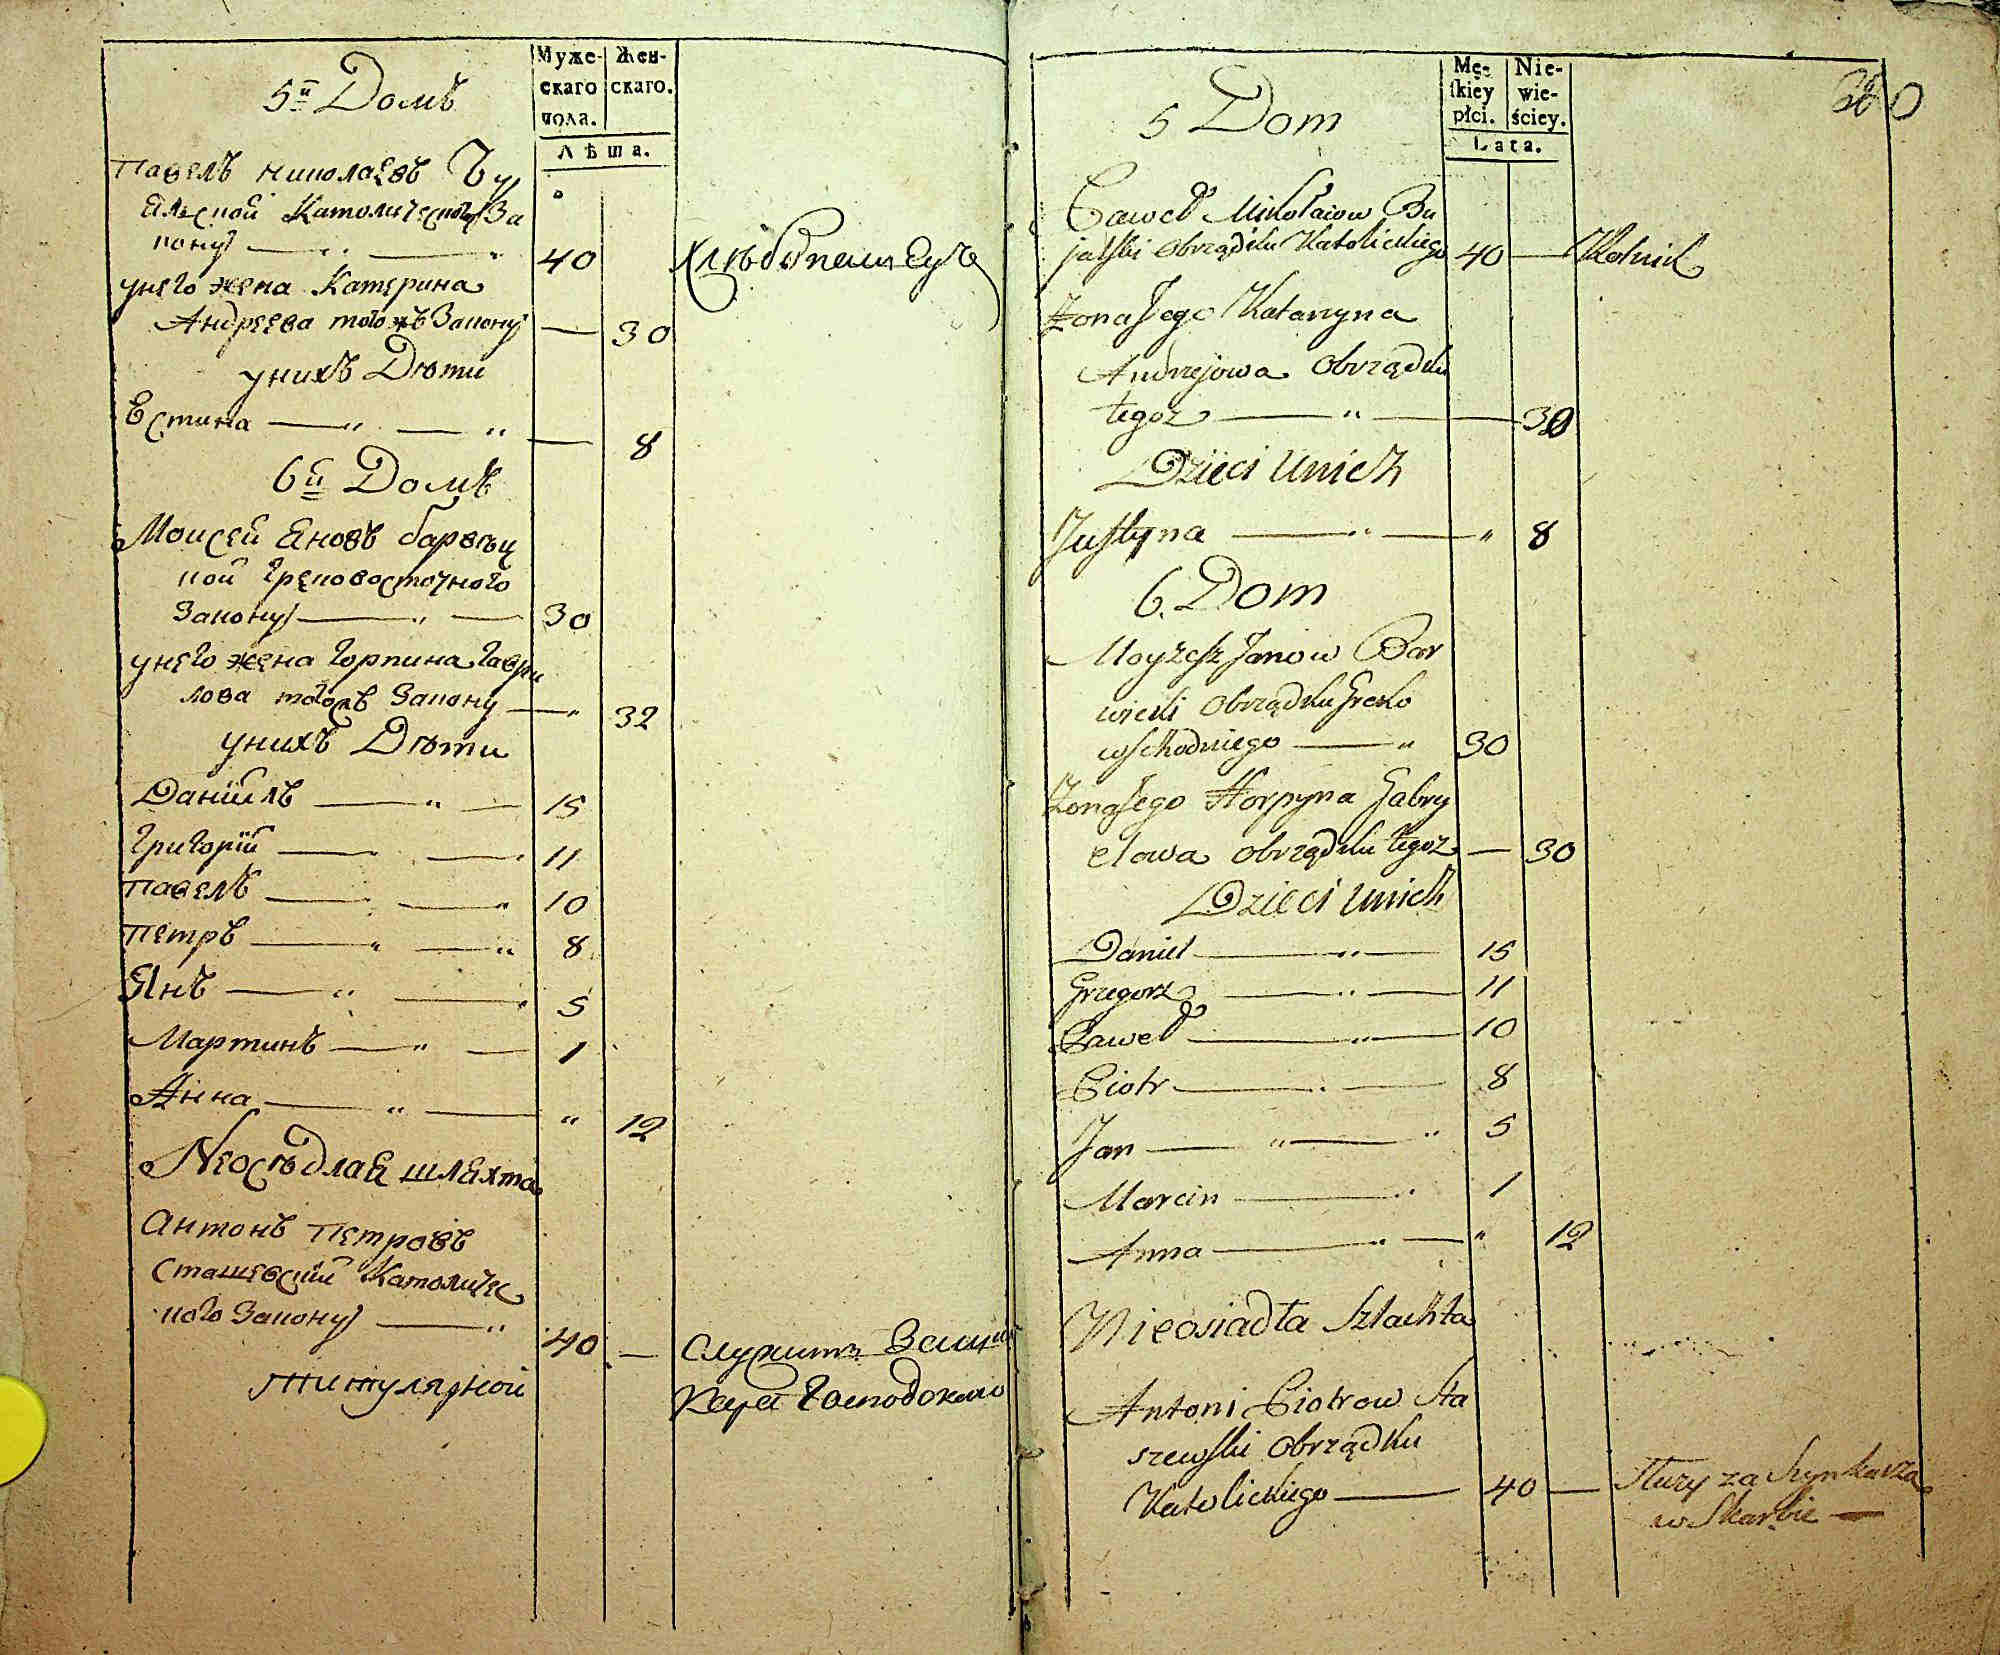 Муже-
скаго
пола.
Жен-
скаго.
Лѣта.
5й Домъ
Павелъ Николаевъ Бу
яльской Католическаго За
кону — " — " 40 Хлѣбопашецъ
у него жена Катерина
Андреева тогожъ Закону — 30
у нихъ Дѣти
Естина — " — " — 8
6й Домъ
Моисей Яновъ барвѣц
кой Грековосточного
Закону — " — 30
у него жена Горпина Гаври
лова тогожъ Закону — " 32
у нихъ Дѣти
Даниилъ — " — 15
Григорій — " — " 11
Павелъ — " — " 10
Петръ — " — " 8
Янъ — " — " 5
Мартинъ — " — 1
Анна — " — " 12
Неосѣдлая шляхта
Антонъ Петровъ
Сташевскій Католичес
кого Закону — " 40 — Служитъ
титулярной
Mę-
skiey
płci.
Nie-
wie-
ściey.
Lata.
5 Dom
Paweł Mikołaiow Bu
jalski obrządku Katolickiego 40 — Rolnik
Żona Jego Katarzyna
Andrzejowa obrządku
tegoż — " — 30
Dzieci u nich
Justyna — " — " 8
6. Dom
Moyżesz Janow Bar
wicki obrządku Greko
wschodniego — " 30
Żona Jego Horpyna Gabry
elowa obrządku tegoż — 30
Dzieci u nich
Daniel — " — 15
Grzegorz — " — 11
Paweł — " — 10
Piotr — " — 8
Jan — " — " 5
Marcin — " 1
Anna — " — " 12
Nieosiadła Szlachta
Antoni Piotrow Sta
szewski obrządku
Katolickiego — 40 — Służy za Szynkarza
w Skarbie —